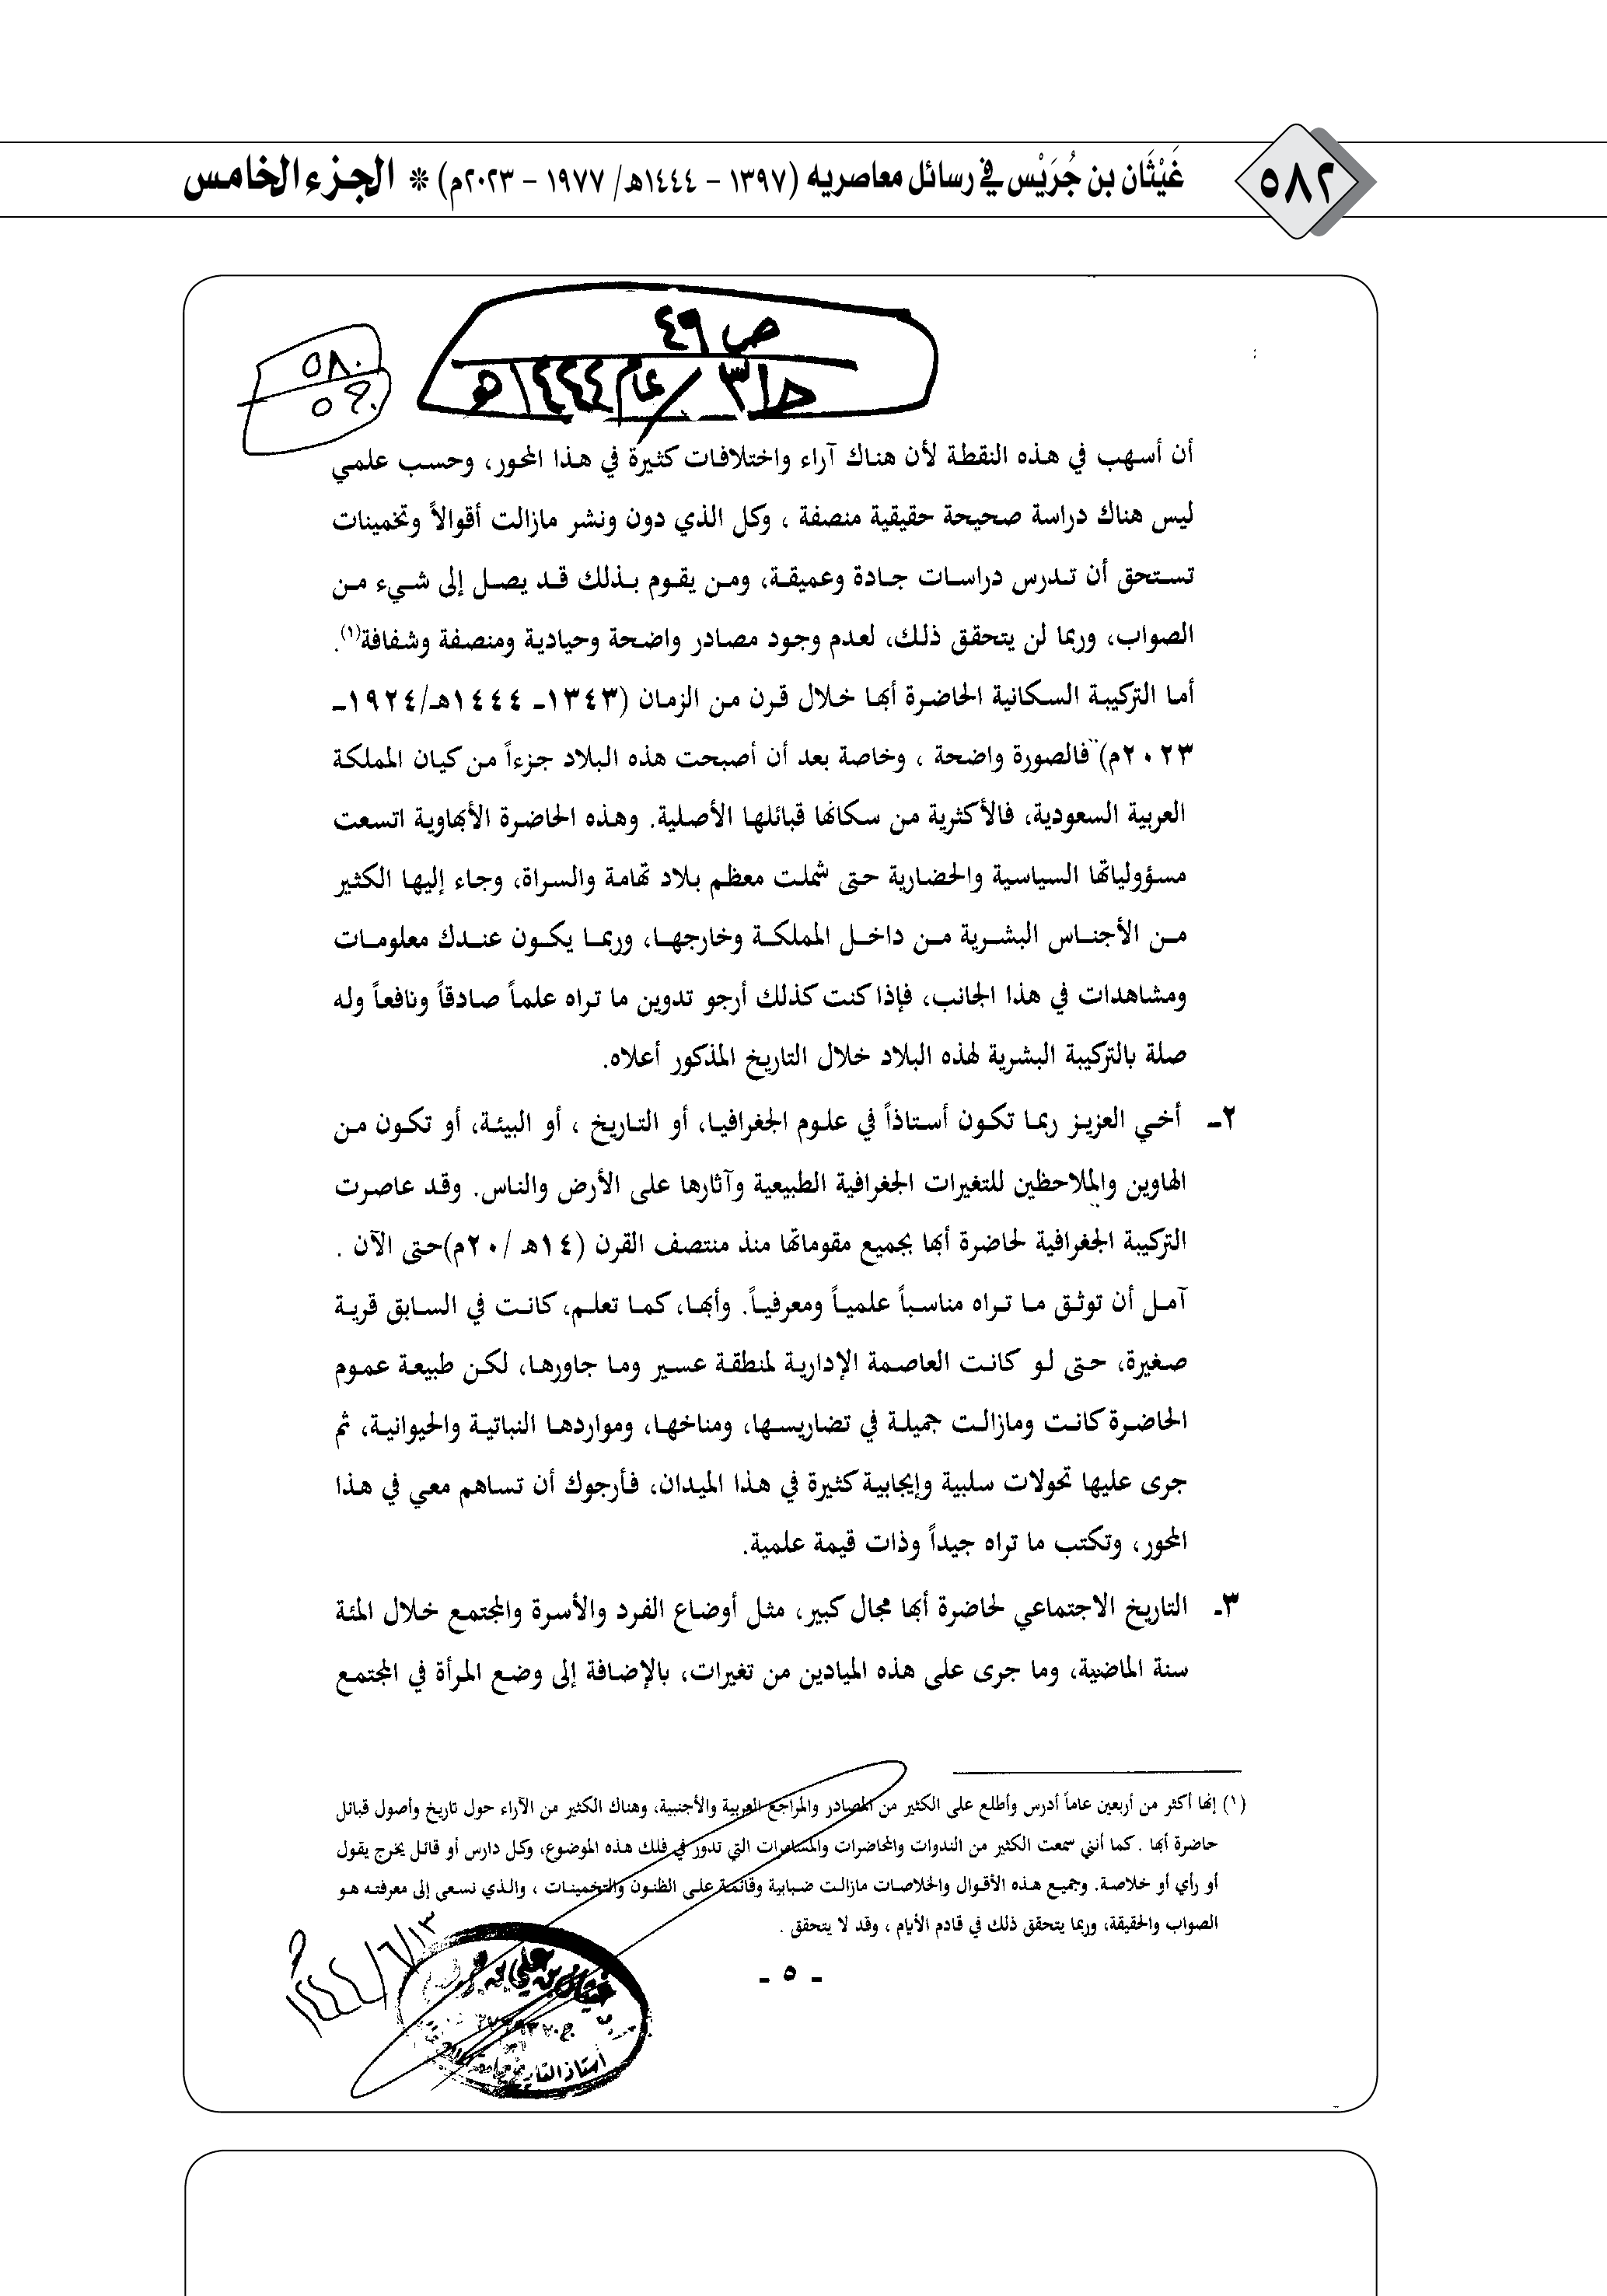 ٥٨٢
غَيْثَان بن جُرَيْس في رسائل معاصريه (١٣٩٧ – ١٤٤٤هـ/ ١٩٧٧ – ٢٠٢٣م) * الجزء الخامس
ص ٤٩
ج٣١ / عام ١٤٤٤هـ
٥٨٠
أن أسهب في هذه النقطة لأن هناك آراء واختلافات كثيرة في هذا المحور، وحسب علمي
ليس هناك دراسة صحيحة حقيقية منصفة ، وكل الذي دون ونشر مازالت أقوالاً وتخمينات
تستحق أن تدرس دراسات جادة وعميقة، ومن يقوم بذلك قد يصل إلى شيء من
الصواب، وربما لن يتحقق ذلك، لعدم وجود مصادر واضحة وحيادية ومنصفة وشفافة(١).
أما التركيبة السكانية الحاضرة أبها خلال قرن من الزمان (١٣٤٣ـ ١٤٤٤هـ/١٩٢٤ـ
٢٠٢٣م) فالصورة واضحة ، وخاصة بعد أن أصبحت هذه البلاد جزءاً من كيان المملكة
العربية السعودية، فالأكثرية من سكانها قبائلها الأصلية. وهذه الحاضرة الأبهاوية اتسعت
مسؤولياتها السياسية والحضارية حتى شملت معظم بلاد تهامة والسراة، وجاء إليها الكثير
من الأجناس البشرية من داخل المملكة وخارجها، وربما يكون عندك معلومات
ومشاهدات في هذا الجانب، فإذا كنت كذلك أرجو تدوين ما تراه علماً صادقاً ونافعاً وله
صلة بالتركيبة البشرية لهذه البلاد خلال التاريخ المذكور أعلاه.
٢ـ أخي العزيز ربما تكون أستاذاً في علوم الجغرافيا، أو التاريخ ، أو البيئة، أو تكون من
الهاوين والملاحظين للتغيرات الجغرافية الطبيعية وآثارها على الأرض والناس. وقد عاصرت
التركيبة الجغرافية لحاضرة أبها بجميع مقوماتها منذ منتصف القرن (١٤هـ /٢٠م)حتى الآن .
آمل أن توثق ما تراه مناسباً علمياً ومعرفياً. وأبها، كما تعلم، كانت في السابق قرية
صغيرة، حتى لو كانت العاصمة الإدارية لمنطقة عسير وما جاورها، لكن طبيعة عموم
الحاضرة كانت ومازالت جميلة في تضاريسها، ومناخها، ومواردها النباتية والحيوانية، ثم
جرى عليها تحولات سلبية وإيجابية كثيرة في هذا الميدان، فأرجوك أن تساهم معي في هذا
المحور، وتكتب ما تراه جيداً وذات قيمة علمية.
٣ـ التاريخ الاجتماعي لحاضرة أبها مجال كبير، مثل أوضاع الفرد والأسرة والمجتمع خلال المئة
سنة الماضية، وما جرى على هذه الميادين من تغيرات، بالإضافة إلى وضع المرأة في المجتمع
(١) إنها أكثر من أربعين عاماً أدرس وأطلع على الكثير من المصادر والمراجع العربية والأجنبية، وهناك الكثير من الآراء حول تاريخ وأصول قبائل
حاضرة أبها . كما أنني سمعت الكثير من الندوات والمحاضرات والمسامرات التي تدور في فلك هذه الموضوع، وكل دارس أو قائل يخرج يقول
أو رأي أو خلاصة. وجميع هذه الأقوال والخلاصات مازالت ضبابية وقائمة على الظنون والتخمينات ، والذي نسعى إلى معرفته هو
الصواب والحقيقة، وربما يتحقق ذلك في قادم الأيام ، وقد لا يتحقق .
- ٥ -
١٤٤٤/٦/١٣
غيثان بن علي بن
أستاذ التاريخ